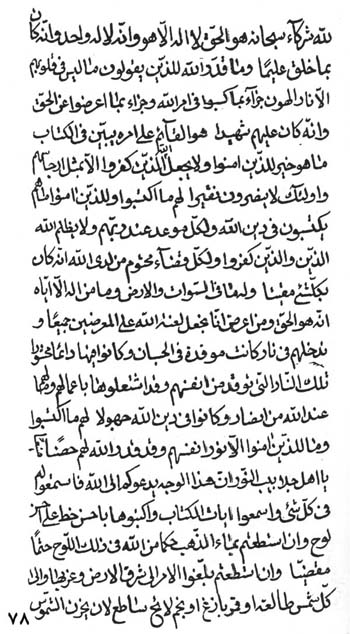 لله شركآء سبحانه هو الحق لا اله الا هو وانه لا اله واحد وانه كان
بما خلق عليمًا وما قدر الله للذين يقولون ما ليس فى قلوبهم
الا نار الهون جزآء بما كسبوا فى امر الله وجزآء بما اعرضوا عن الحق
وانه كان عليهم شهيدا هو القآئم على امره يبين فى الكتاب
ما هو خير للذين امنوا ولا يجعل الله للذين كفروا الا بمثل
واولئك لا يبصرون نقيرا لهم ما اكتسبوا وللذين امنوا
يكتسبون فى دين الله ولكل موعد عند ربهم ولا يظلم الله
الذين والذين كفروا ولكل قضآء محتوم من لدى الله انه كان
بكلشئ مقيتا وله ما فى السموات والارض وما من اله الا اياه
انه هو الحق ومن اعرض انا نجعل لعنة الله على المعرضين جميعًا و
يدخلهم فى نار كانت موقدة فى الحسبان وكانوا فيها دائما
تلك النار التى توقد من انفسهم وقد اشتعلوها باعمالهم
عند الله من انصار وكانوا فى دين الله جهولا لهم ما اكتسبوا
وما للذين امنوا الا نور انفسهم وقد قدر الله لهم
يا اهل هذا الوحيد يدعوكم الى الله فاسمعوا
فى كل شئ واسمعوا ايات الكتاب واكتبوها باحسن خط على
لوح وان استطعتم بماء الذهب حكما من الله فى ذلك اللوح حتمًا
مقضيًا وان استطعتم بلغوا الامر الى شرق الارض وغربها والى
كل شمس طالعة او قمر بازغ او نجم لائح ساطع لان يحزن
٧٨